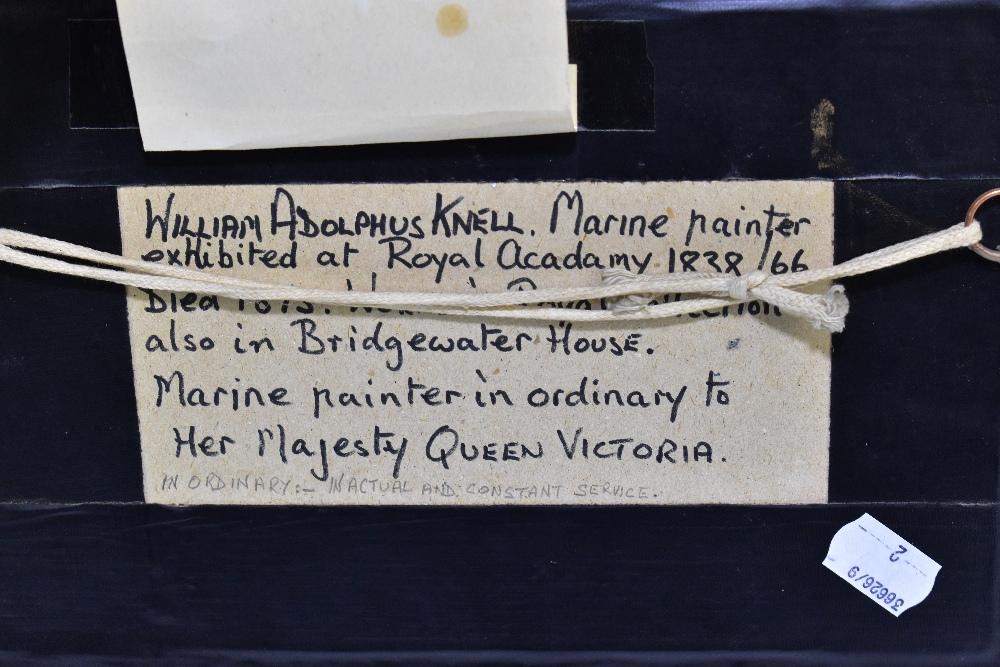 WILLIAM ADOLPHUS KNELL. Marine painter
exhibited at Royal Acadamy 1838/66
Died 1875. Work in Royal Collection
also in Bridgewater HOUSE.
Marine painter in ordinary to
Her Majesty QUEEN VICTORIA.
IN ORDINARY:- IN ACTUAL AND CONSTANT SERVICE.
2
36626/9